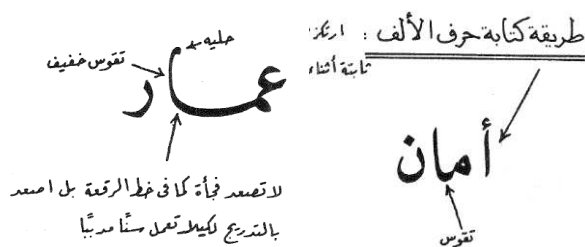 طريقة كتابة حرف الألف : ارتكز
ثابتة أثناء
أمان
تقوس
حليه
تقوس خفيف
عمار
لا تصعد فجأة كما فى خط الرقعة بل اصعد
بالتدريج لكيلا تعمل سنًا مدببًا